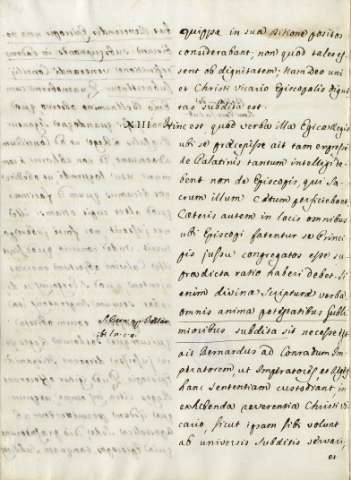 quippe in sua ditione positos
considerabant, non quod tales es
sent ob dignitatem; Nam Deo uni
et Christi Vicario Episcopalis digni
tas subdita est.
XIII Hinc est quod verba illa
ubi se præcepisse ait tam
de Palatinis tantum intelligi de
bent non de Episcopis, qui Sa
crum illum Cætum perficiebant
Cæteris autem in locis omnibus
ubi Episcopi fatentur se Princi
pis jussu congregatos esse su
pradicta ratio haberi debet. Si
enim divinæ Scripturæ verba
omnis anima potestatibus subli
mioribus subdita sit necesse est
ait Bernardus ad Conradum Im
peratorem, ut Imperatores et Reges
hanc sententiam custodiant, in
exhibenda reverentia Christi Vi
cario, sicut ipsam sibi volunt
ab universis subditis servari,